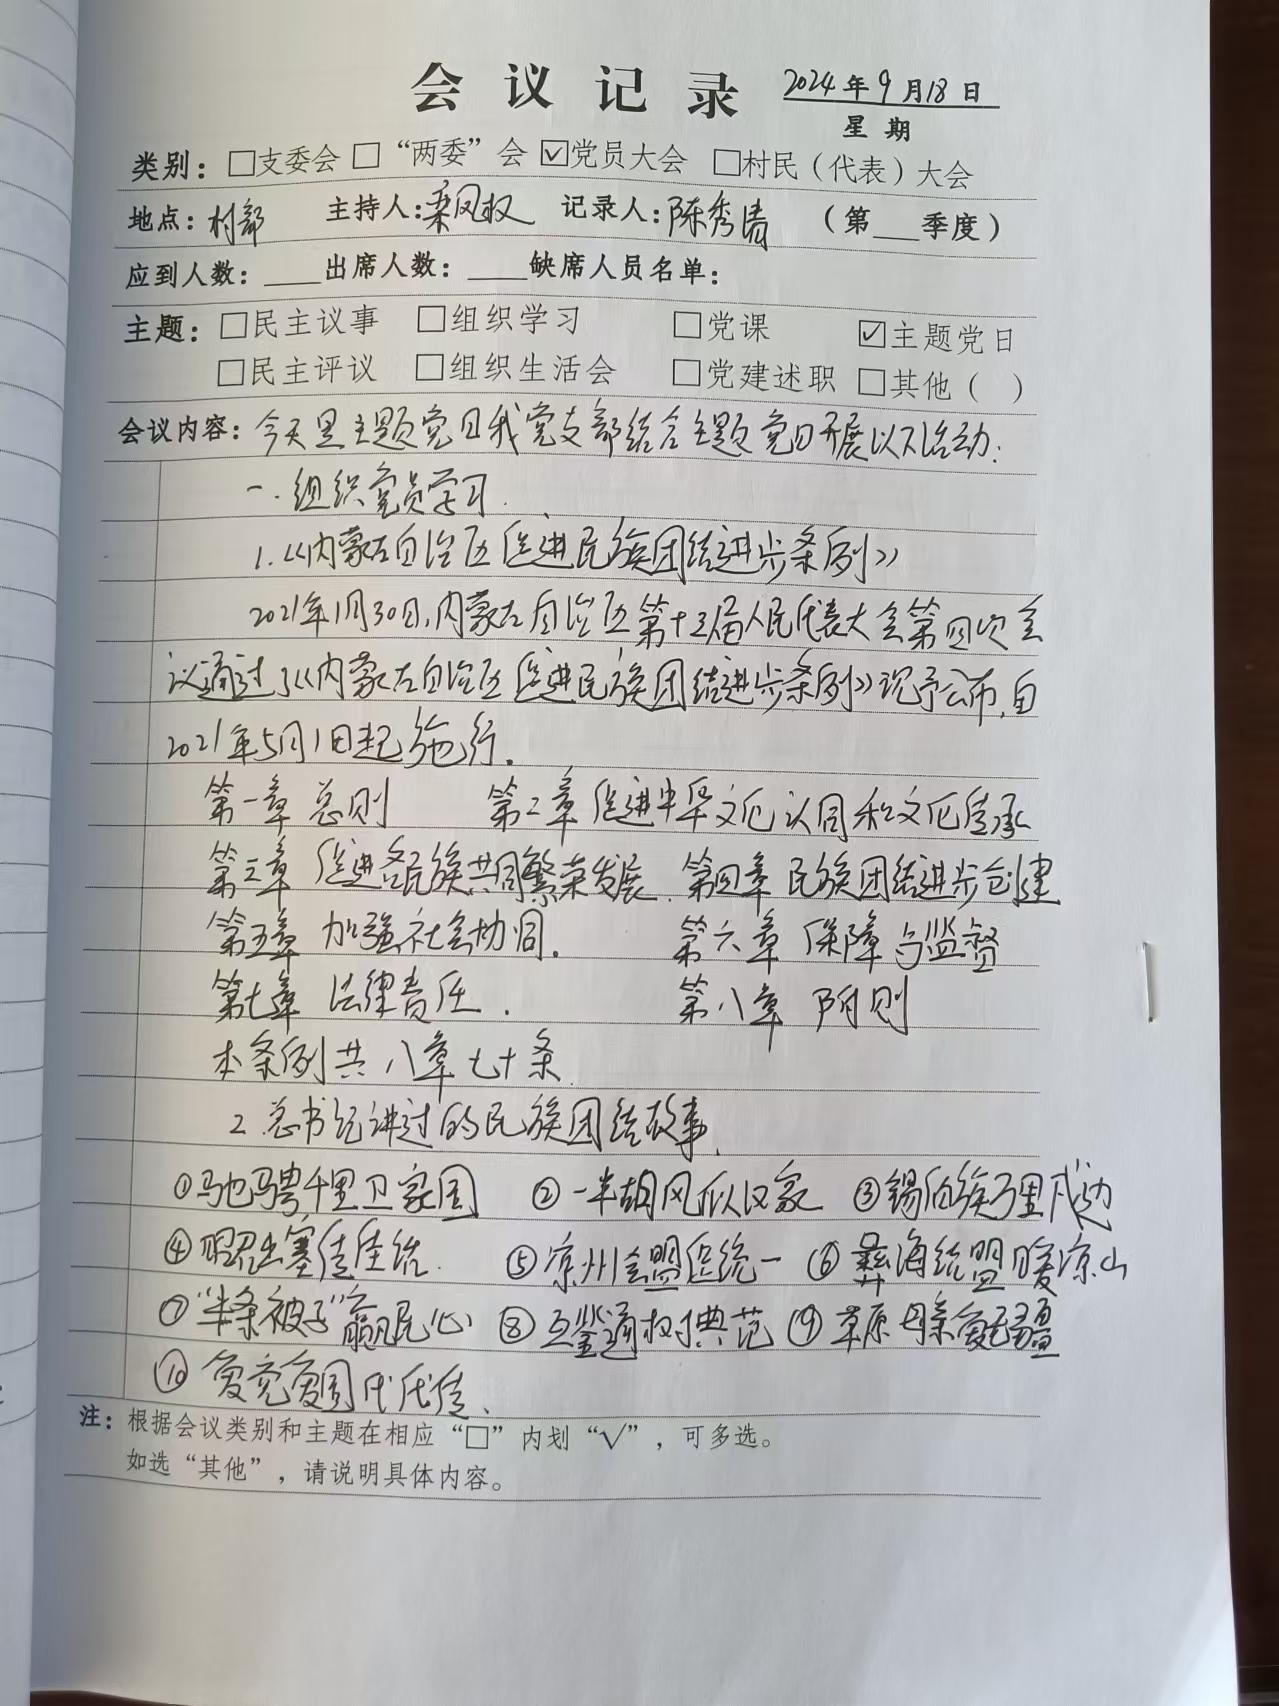 会议记录 2024年9月18日
星期
类别：□支委会 □“两委”会 ☑党员大会 □村民（代表）大会
地点：村部 主持人：栾凤权 记录人：陈秀清 （第___季度）
应到人数：____出席人数：____缺席人员名单：
主题：□民主议事 □组织学习 □党课 ☑主题党日
□民主评议 □组织生活会 □党建述职 □其他（ ）
会议内容：今天是主题党日我党支部结合主题党日开展以下活动：
一.组织党员学习.
1.《内蒙古自治区促进民族团结进步条例》
2021年1月30日,内蒙古自治区第十三届人民代表大会第四次会
议通过了《内蒙古自治区促进民族团结进步条例》现予公布,自
2021年5月1日起施行.
第一章 总则 第二章 促进中华文化认同和文化传承
第三章 促进各民族共同繁荣发展. 第四章 民族团结进步创建
第五章 加强社会协同. 第六章 保障与监督
第七章 法律责任. 第八章 附则
本条例共八章七十条.
2.总书记讲过的民族团结故事.
①驰骋千里卫家国 ②一半胡风似汉家 ③锡伯族万里戍边
④昭君出塞传佳话. ⑤凉州会盟促统一 ⑥彝海结盟暖凉山
⑦“半条被子”赢民心 ⑧互鉴通权典范 ⑨草原母亲爱无疆
⑩爱党爱国代代传.
注：根据会议类别和主题在相应“□”内划“√”，可多选。
如选“其他”，请说明具体内容。